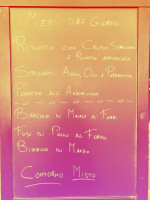 Menù del Giorno
Risotto con Crema Scampi
e Ricotta affumicata
Spaghetti Aglio, Olio e Peperoncino
Polpette all'
Braciola di Maiale ai Ferri
Fusi di Pollo al Forno
Bistecca di Manzo
Contorno Misto